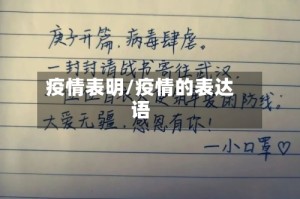 庚子开篇,病毒肆虐。
一封封请战书寄往武汉,
疫情表明/疫情的表达
语
的防线;
大爱无疆,感恩有你!
一小口罩♡